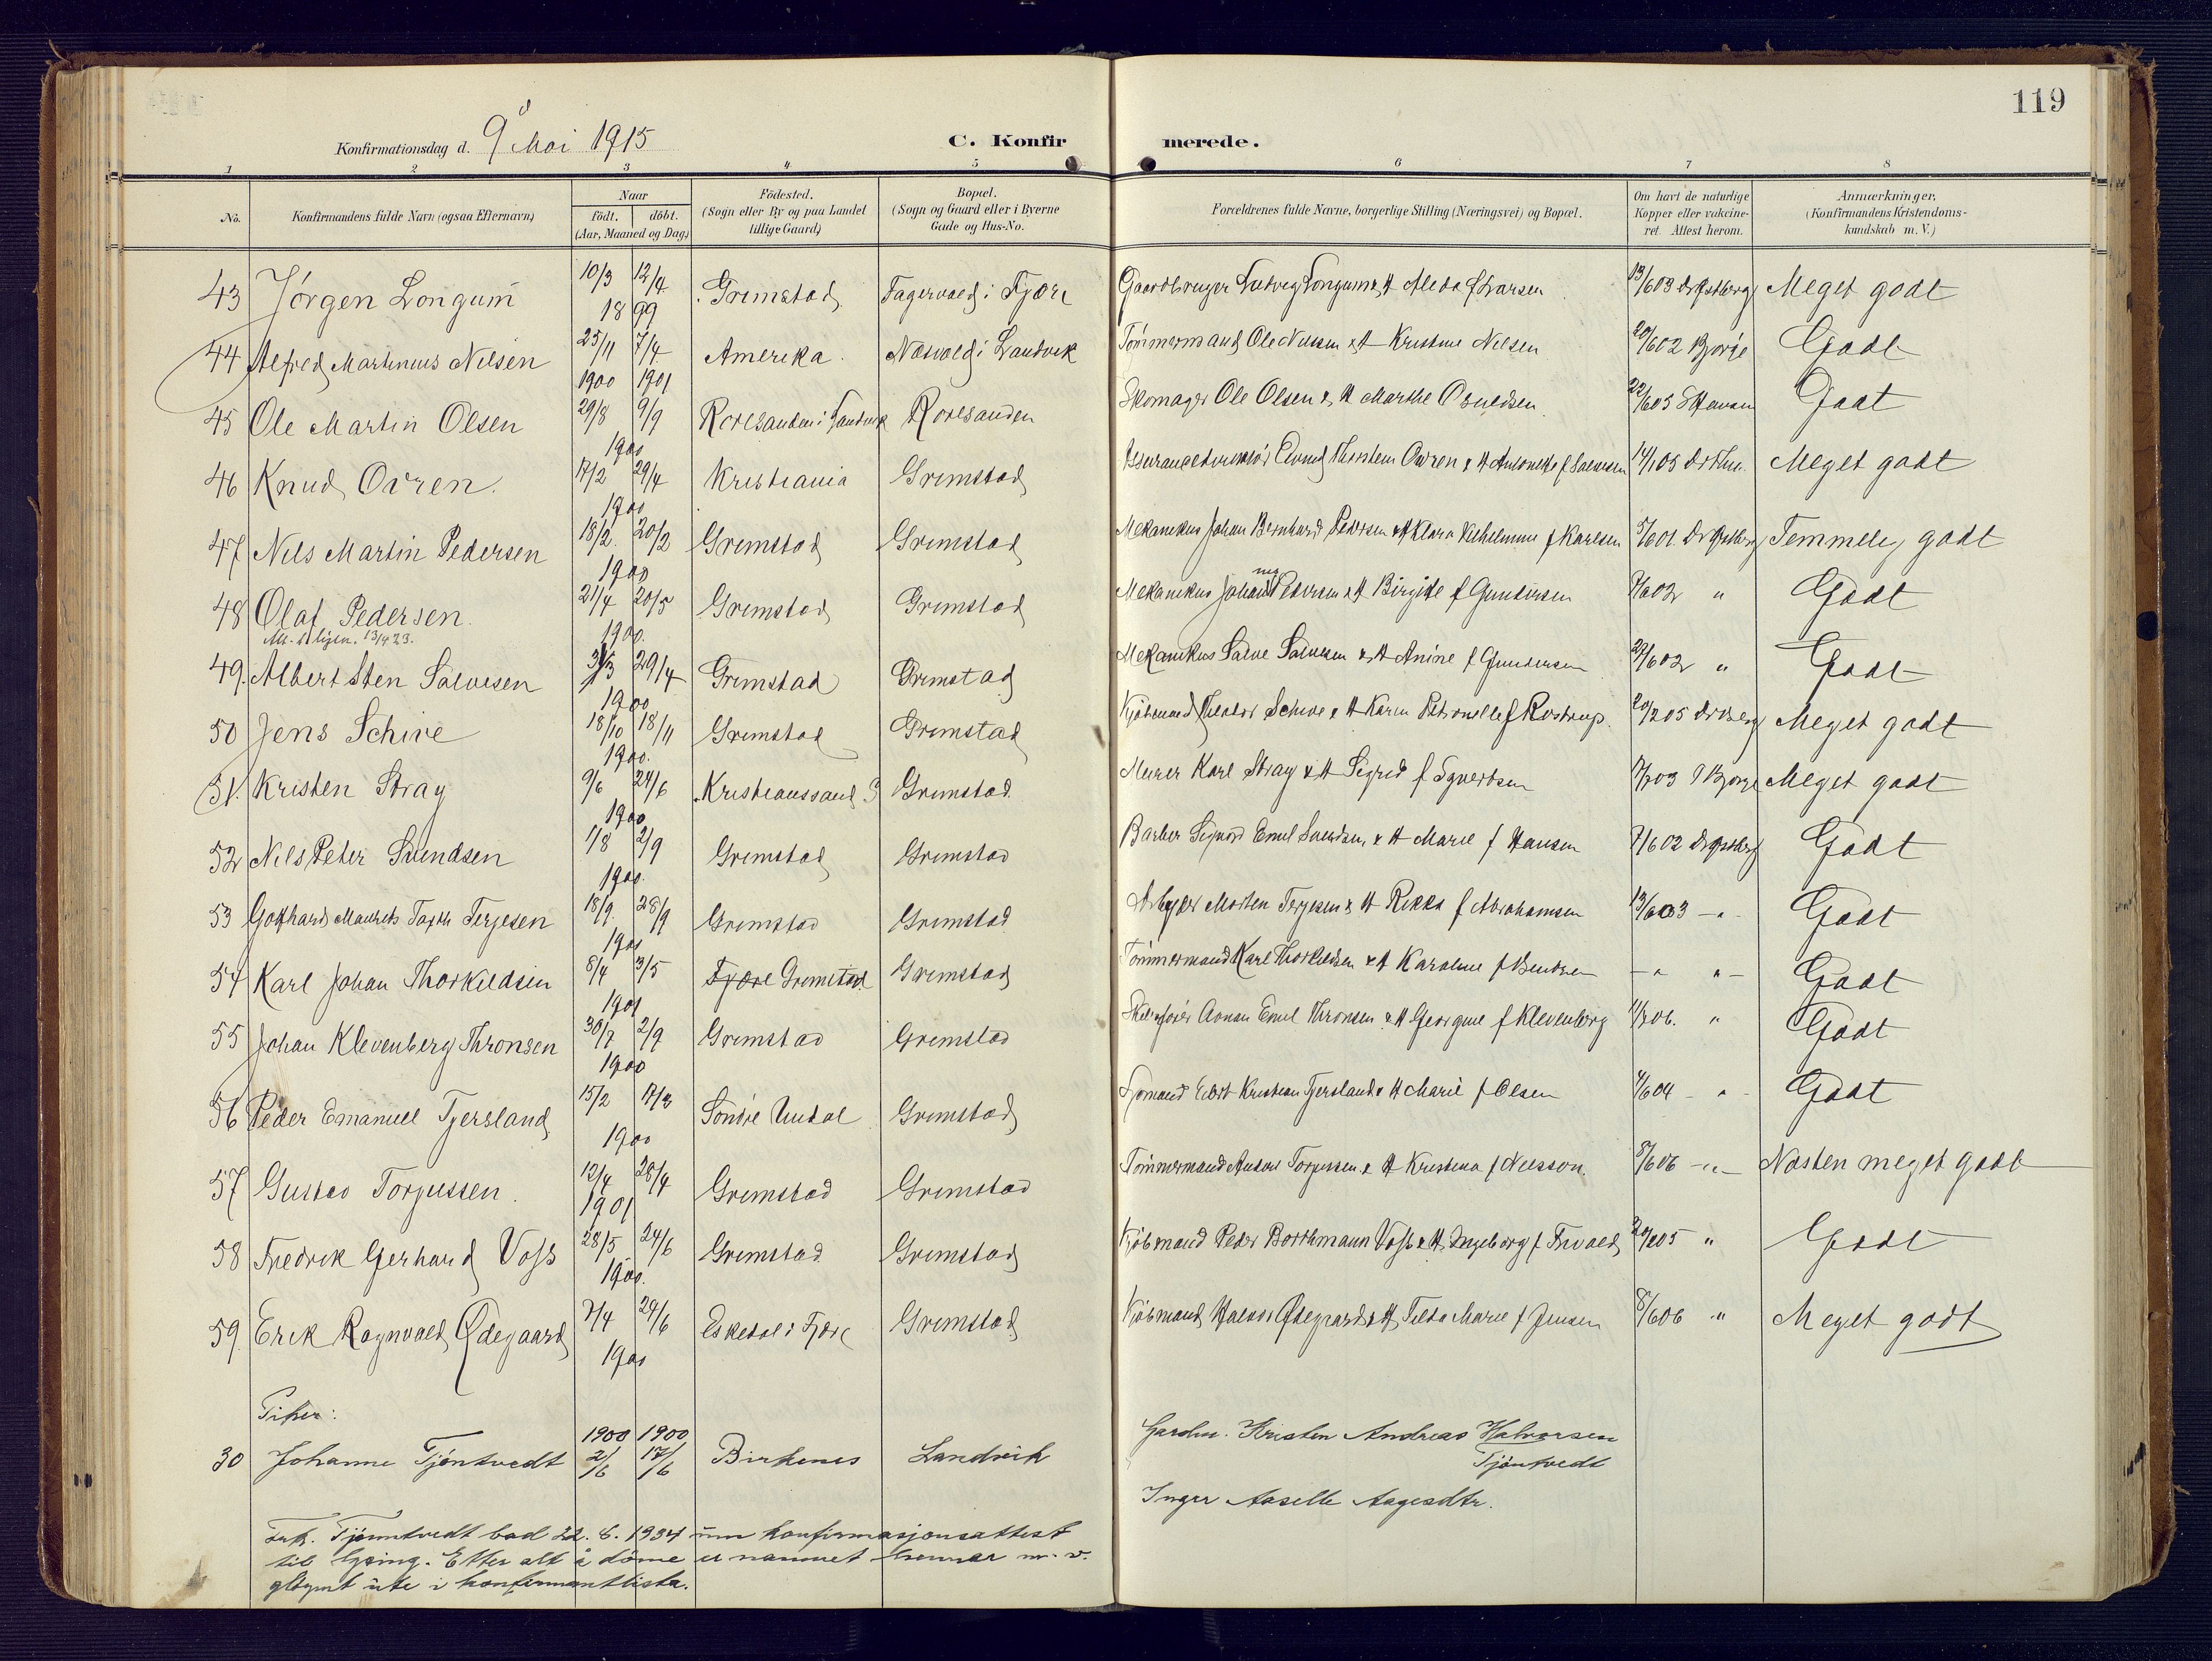 119
Konfirmationsdag d. 9d Mai 1915
C. Konfirmerede.
1 2 3 4 5 6 7 8
No. Konfirmandens fulde Navn (ogsaa Efternavn)
Naar födt. döbt. (Aar, Maaned og Dag)
Födested. (Sogn eller By og paa Landet tillige Gaard)
Bopæl. (Sogn og Gaard eller i Byerne Gade og Hus-No.
Forældrenes fulde Navne, borgerlige Stilling (Næringsvei) og Bopæl.
Om havt de naturlige Kopper eller vakcineret. Attest herom.
Anmærkninger, (Konfirmandens Kristendomskundskab m. V.)
43 Jörgen Longum 10/3 12/4 1899 Grimstad Fagervold i Fjære Gaardbruger Ludvig Longum & H Aleda f Larsen 13/6 03 Meget godt
44 Alfred Martinius Nilsen 25/11 1900 7/4 1901 Amerika Næsvold i Landvik Tömmermand Ole Nilssen & H Kristine Nilsen 20/6 02 Bjorge Godt
45 Ole Martin Olsen 29/8 9/9 1900 Roresanden i Landvik Roresanden Skomager Ole Olsen & H Marthe Osuldsen 22/6 05 Godt
46 Knud Ovren. 17/2 29/4 1900 Kristiania Grimstad Meget godt
47 Nils Martin Pedersen 18/2 20/2 1900 Grimstad Grimstad Mekanikus Johan Bernhard Pedersen & H Klara Vilhelmine f Karlsen Temmelig godt
48 Olaf Pedersen. 21/4 20/5 1900. Grimstad Grimstad Mekanikus Johan Pedersen & H Birgitte f Gundersen 7/6 02 " Godt
49. Albert Sten Salvesen 29/4 1900 Grimstad Grimstad Mekanikus Salve Salvesen & H Anine f Gundersen " Godt
50 Jens Schive 18/10 18/11 1900. Grimstad Grimstad Kjöbmand Theodor Schive & H Karen Petronelle f Rostrup. Meget godt
51. Kristen Stray 9/6 24/6 1900 Kristianssand S Grimstad Murer Karl Stray & H Sigrid f Syvertsen Meget godt
52 Nils Peter Svendsen 1/8 2/9 1900. Grimstad Grimstad Barber Sigvard Emil Svendsen & H Marie f Hansen 7/6 02 Godt
53 Gotthard Maurits Terjesen 18/9 28/9 1900 Grimstad Grimstad Morten Terjesen & H Rikka f Abrahamsen 13/6 03 - " - Godt
54 Karl Johan Thorkildsen 8/4 3/5 1901 Fjære Grimstad Grimstad Tömmermand Karl Thorkildsen & H Karoline f Bentsen - " " - Godt
55 Johan Klevenberg Thronsen 30/7 2/9 1900 Grimstad Grimstad Emil Thronsen & H Georgine f Klevenberg " Godt
56 Peder Emanuel Tjersland 15/2 1900 Söndre Undal Grimstad Sömand Kristian Tjersland & H Marie f Olsen 4/6 04 - " - Godt
57 Gustav Torjussen. 12/4 28/4 1901 Grimstad Grimstad Tömmermand Anton Torjussen & H Kristina f Nilsson. 8/6 06 - " - Næsten meget godt
58 Fredrik Gerhard Voss 28/5 24/6 1900. Grimstad Grimstad Kjöbmand Peder Borchmann Voss & H Ingeborg f Trovald " Godt
59. Erik Ragnvald Ødegaard 7/4 24/6 1900 Eskedal i Fjære Grimstad Kjöbmand Halvor Ødegaard & H Tilda Marie f Jensen 8/6 06 " Meget godt
Piker:
30 Johanne Tjöntvedt 1900 2/6 1900 17/6 Birkenes Landvik Gardm. Kristen Andreas Halvorsen Tjöntvedt
Inger Aaselle Aagesdtr.
Frk. Tjönntvedt bad 22. 6. 1934 um konfirmasjonsattest
til lysing. Etter alt å döme er namnet hennar m. v.
glöymt ute i konfirmantlista.